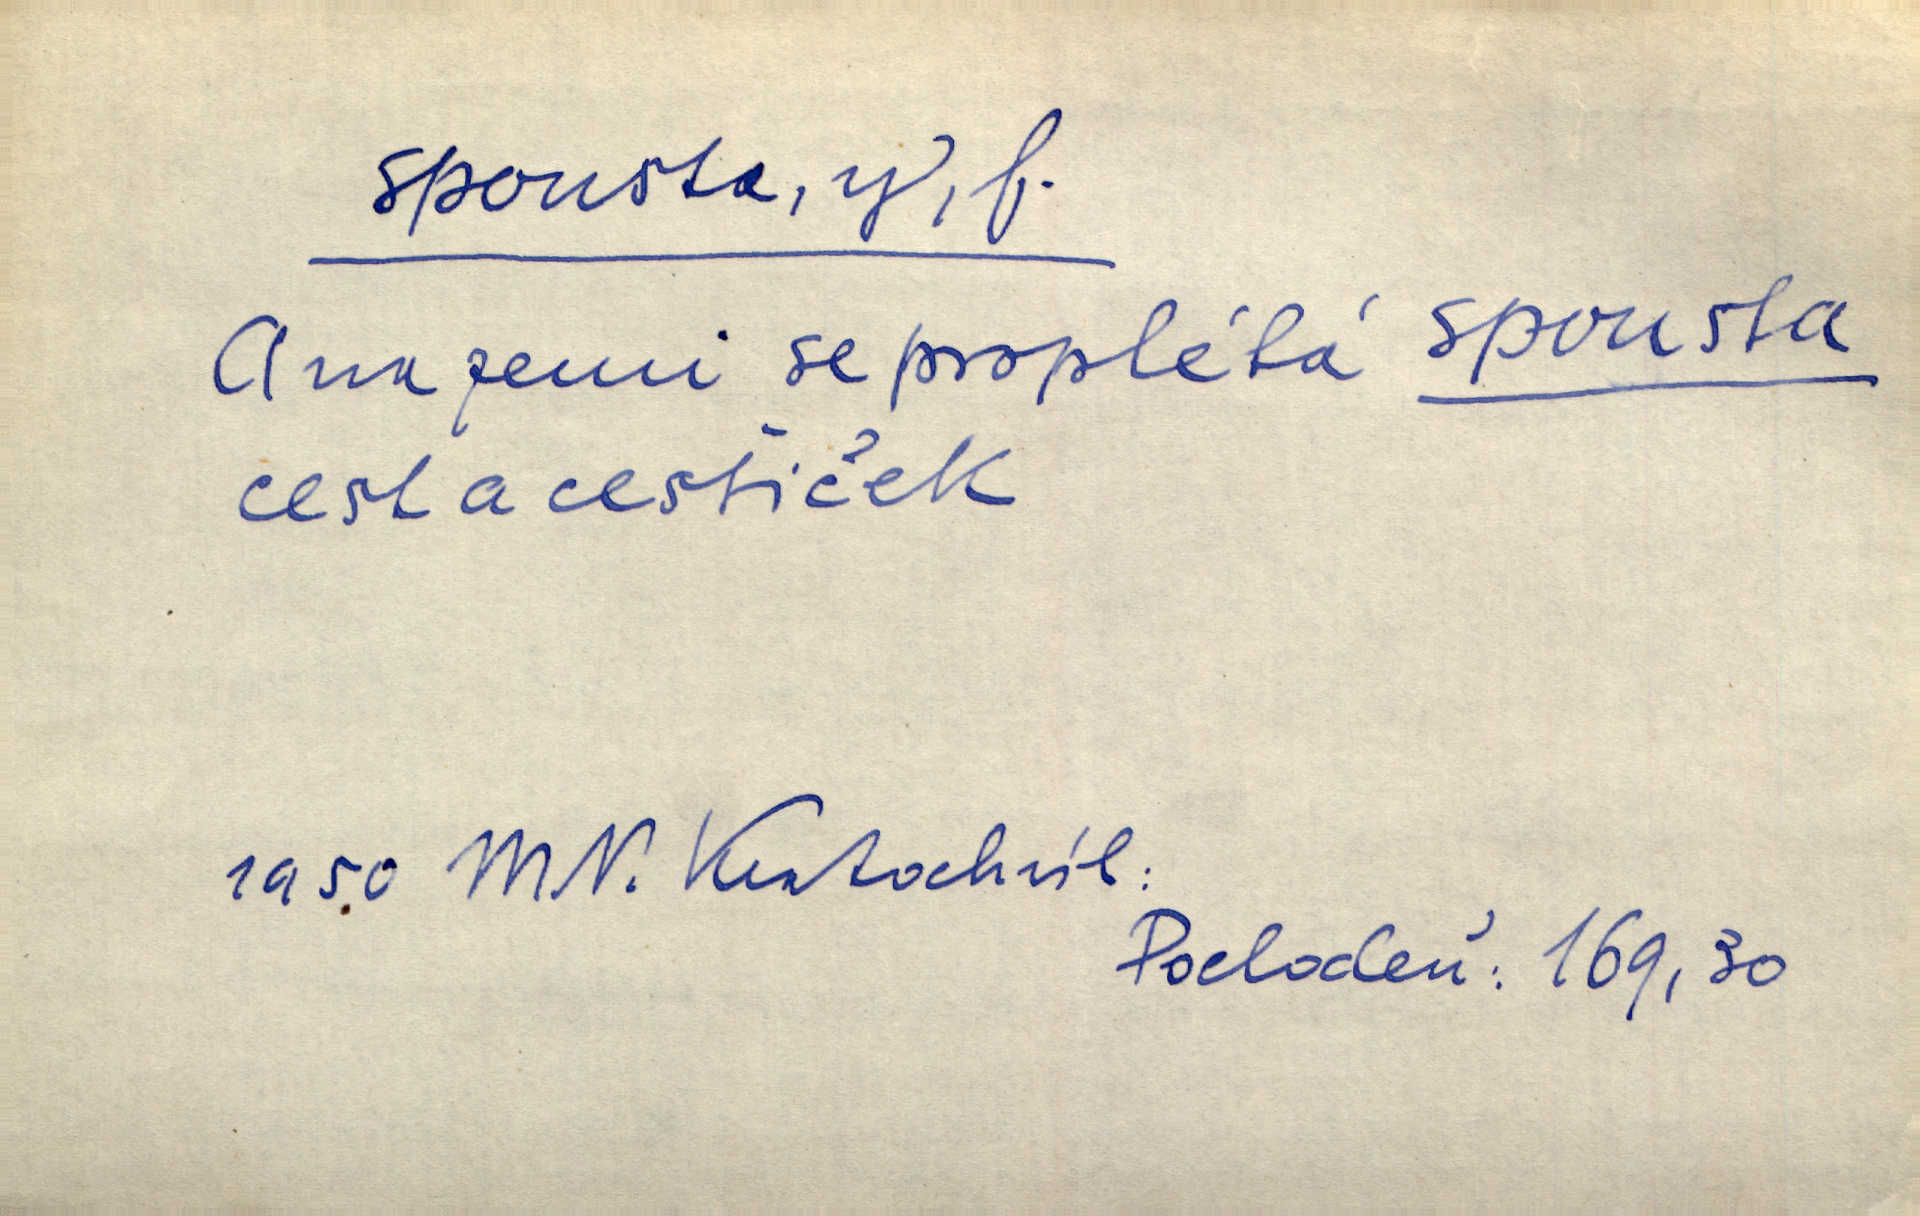 spousta, y, f.
A na zemi se proplétá spousta
cest a cestiček
1950 M.N. Kratochvíl:
Pochodeň: 169,30